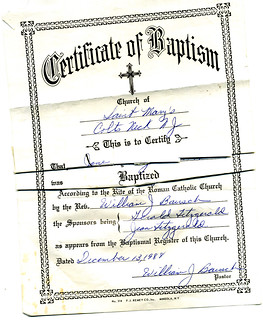 Certificate of Baptism
Church of
Saint Mary's
Colts Neck N.J.
This is to Certify
That
was Baptized
According to the Rite of the Roman Catholic Church
by the Rev. William J Bausch
the Sponsors being Gerald Fitzgerald
Jean Fitzgerald
as appears from the Baptismal Register of this Church.
Dated December 13, 1988
William J Bausch
Pastor